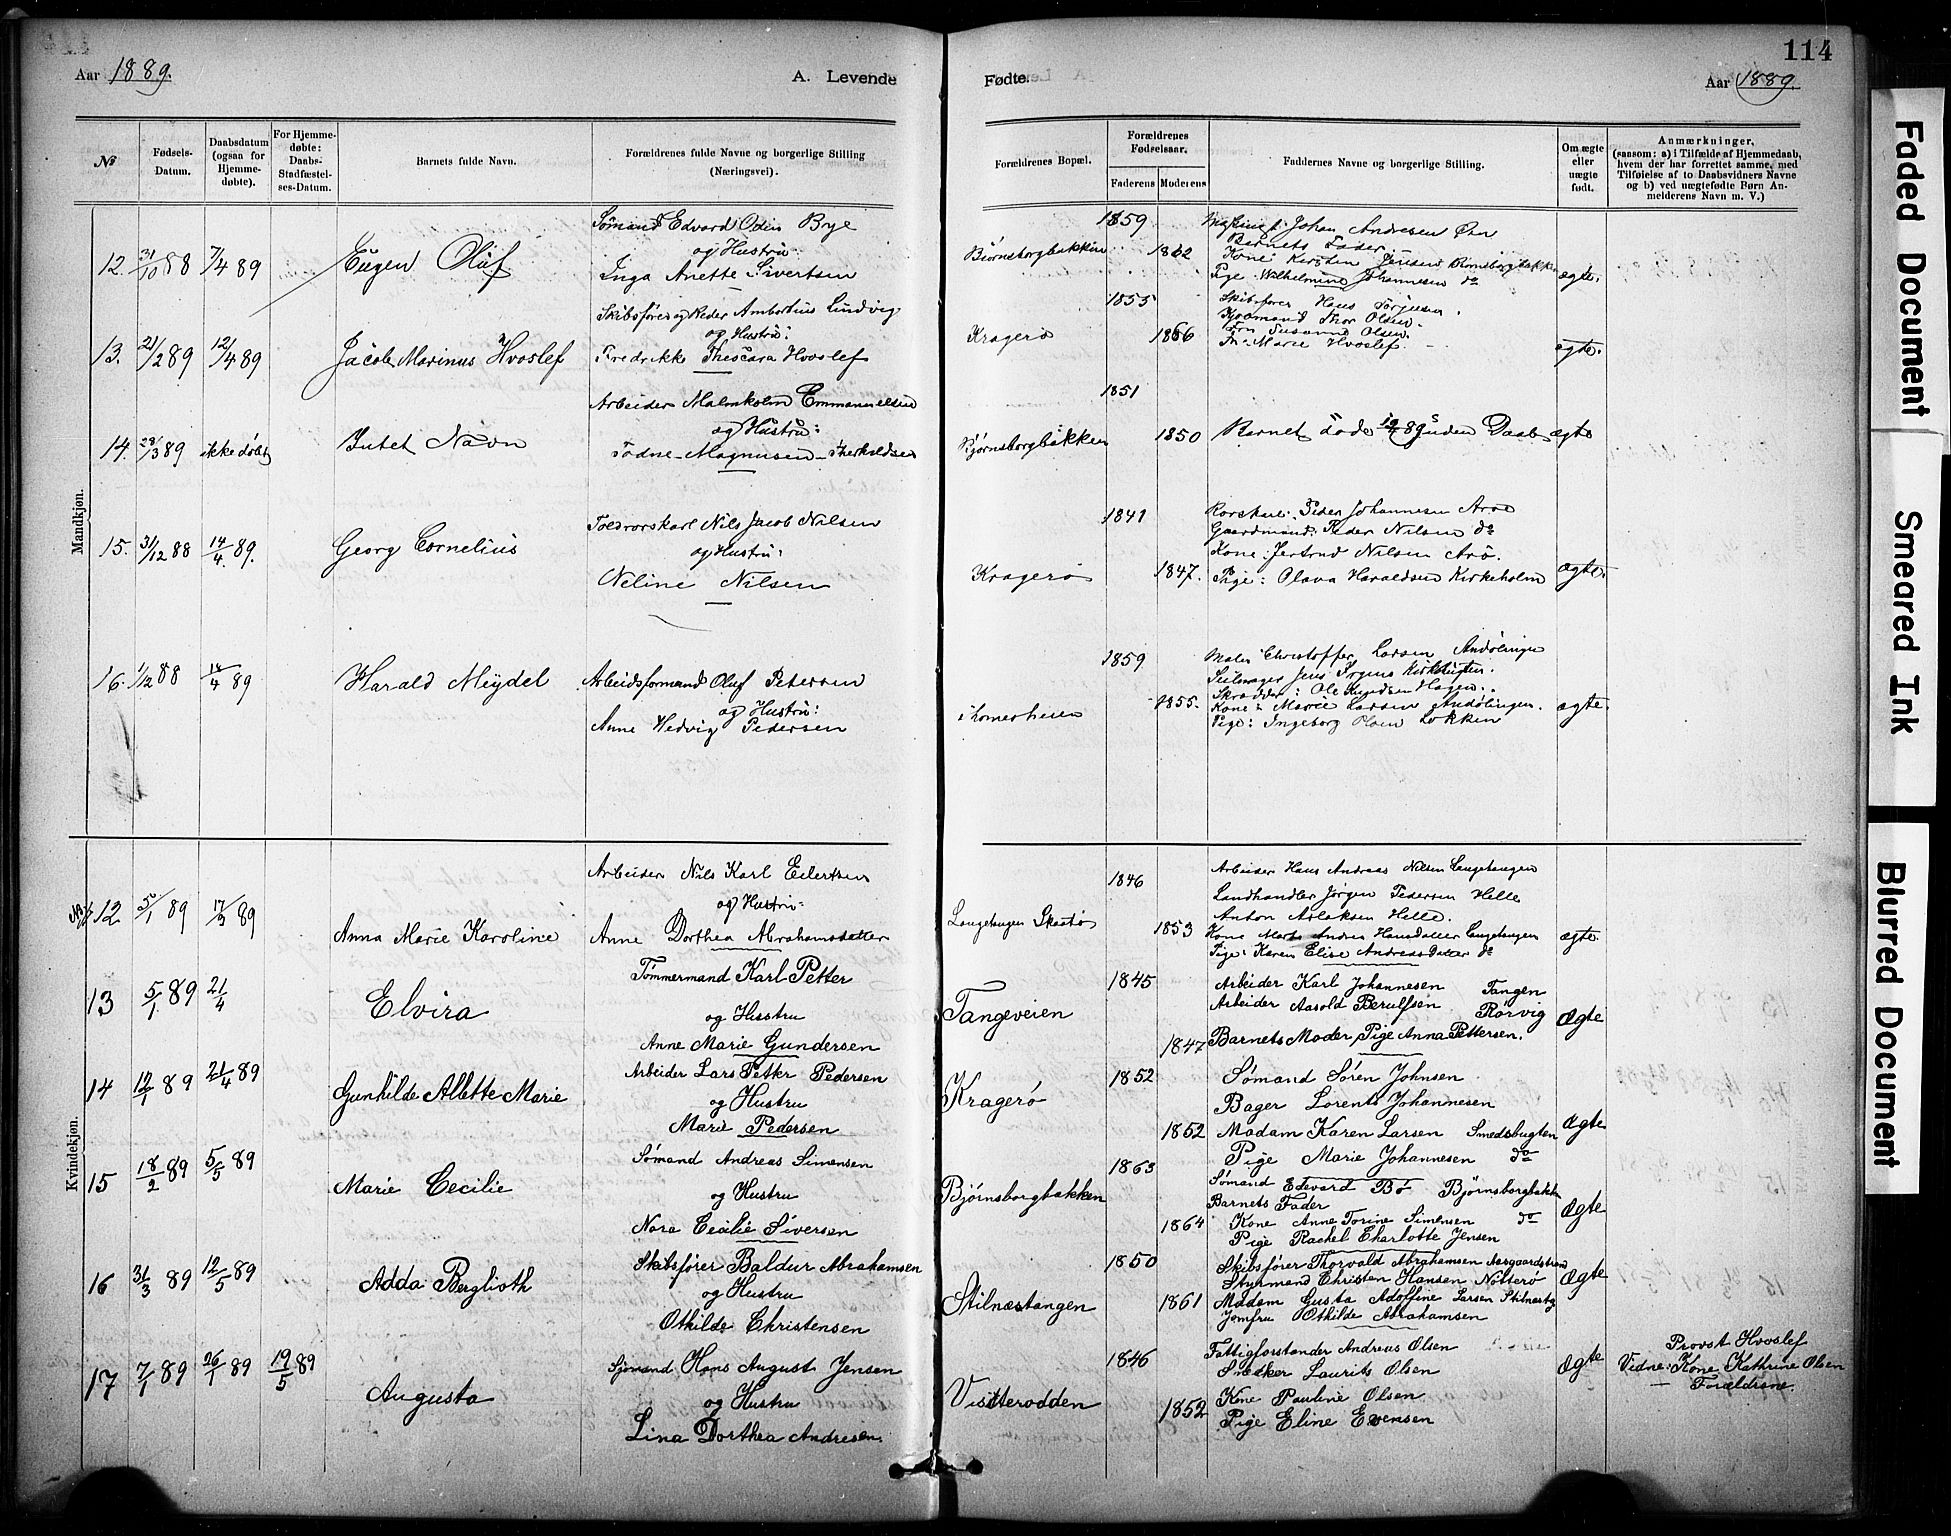 114
Aar 1889.
A. Levende
Fødte.
Aar 1889.
№
Fødsels-Datum.
Daabsdatum (ogsaa for Hjemmedøbte).
For Hjemmedøbte: Daabs-Stadfæstelses-Datum.
Barnets fulde Navn.
Forældrenes fulde Navne og borgerlige Stilling (Næringsvei).
Forældrenes Bopæl.
Forældrenes Fødselsaar.
Faderens
Moderens
Faddernes Navne og borgerlige Stilling.
Om ægte eller uægte født.
Anmærkninger,
(saasom: a) i Tilfælde af Hjemmedaab, hvem der har forrettet samme, med Tilføielse af to Daabsvidners Navne og b) ved uægtefødte Børn Anmelderens Navn m. V.)
Mandkjøn.
12. 31/10 88 7/4 89 Eugen Oluf
Sømand Edvard Odin Bye
og Hustru:
Inga Anette Sivertsen
Bjørnsborgbakken 1859 1862
Johan Andresen
Barnets Fader
Kone Kirsten Jensen Bjørnsborgbakke
Pige Wilhelmine Johannesen do
ægte.
13. 21/2 89 12/4 89 Jacob Marinus Hvoslef
Skibsfører og Reder Ambortius Lindvig
og Hustru:
Fredrikke Thescara Hvoslef
Kragerø 1855 1866
Skibsfører Hans Jørgensen.
Kjøbmand Thor Olsen.
Fru Susanna Olsen.
Fr. Marie Hvoslef.
ægte.
14. 28/3 89 ikke døbt Intet Navn
Arbeider Malmkolm Emmanuelsen
og Hustru:
Todne Magnusen Therkeldsen
Bjørnsborgbakken 1851 1850
Barnet døde 10/4 89 uden Daab ægte
15. 31/12 88 14/4 89. Georg Cornelius
Toldrorskarl Nils Jacob Nilsen
og Hustru:
Neline Nilsen
Kragerø 1841 1847.
Rorskarl: Peder Johannesen Arøe
Gaardmand: Peder Nilsen do
Kone: Jertrud Nilsen Arø.
Pige: Olava Haraldsen Kirkeholm
ægte.
16. 1/12 88 14/4 89 Harald Meydel
Arbeidsformand Oluf Petersen
og Hustru:
Anne Hedvig Pedersen
1859 1855.
Maler Christoffer Larsen Andølingen
Seilmager Jens
Skrædder: Ole Knudsen Hagen.
Kone: Marie Larsen Andølingen.
Pige: Ingeborg Olsen Løkken
ægte.
Kvindekjøn.
12 5/1 89 17/3 89 Anna Marie Karoline
Arbeider Nils Karl Eilertsen
og Hustru:
Anne Dorthea Abrahamsdatter
Langehaugen Skaatø 1846 1853
Arbeider Hans Andreas Nilsen Langehaugen
Landhandler Jørgen Pedersen Helle
Anton Aslaksen Helle.
Kone Marte Andrea Hansdatter Langehaugen
Pige: Karen Elise Andreasdatter do
ægte.
13 5/1 89 21/4 Elvira
Tømmermand Karl Petter
og Husstru
Anne Marie Gundersen
Tangeveien 1845 1847
Arbeider Karl Johannesen Tangen
Arbeider Aasold Berulfsen Rørvig
Barnets Moder, Pige Anna Pettersen.
Ægte
14 12/1 89 21/4 89 Gunhilde Albette Marie
Arbeider Lars Petter Pedersen
og Hustru
Marie Pedersen
Kragerø 1852 1852
Sømand Søren Johnsen
Bager Lorents Johannesen
Madam Karen Larsen Smedsbugten
Pige Marie Johannesen do
Ægte
15 18/2 89 5/5 89 Marie Cecilie
Sømand Andreas Simensen
og Hustru
Nora Cecilie Siversen
Bjørnsborgbakken 1863 1864
Sømand Edevard Bø Bjørnsborgbakk
Barnets Fader
Kone Anne Torine Simensen do
Pige Rachel Charlotte Jensen
Ægte
16 31/3 89 12/5 89 Adda Berglioth
Skibsfører Baldur Abrahamsen
og Hustru
Othilde Christensen
Stilnæstangen 1850 1861
Skibsfører Thorvald Abrahamsen Aasgaardstrand
Styrmand Christen Hansen Nøtterø
Madam Gusta Adolfine Larsen Stilnæstg
Jomfru Othilde Abrahamsen
Ægte
17 7/1 89 26/1 89 19/5 89 Augusta
Sjømand Hans August Jensen
og Hustru
Lina Dorthea Andresen.
Visiterodden 1846 1852
Fattigforstander Andreas Olsen
Snedker Laurits Olsen
Kone Pauline Olsen
Pige Eline Evensen
Ægte
Provst Hvoslef
Vidne: Kone Kathrine Olsen
Forældrene.
Faded Document
Smeared Ink
Blurred Document